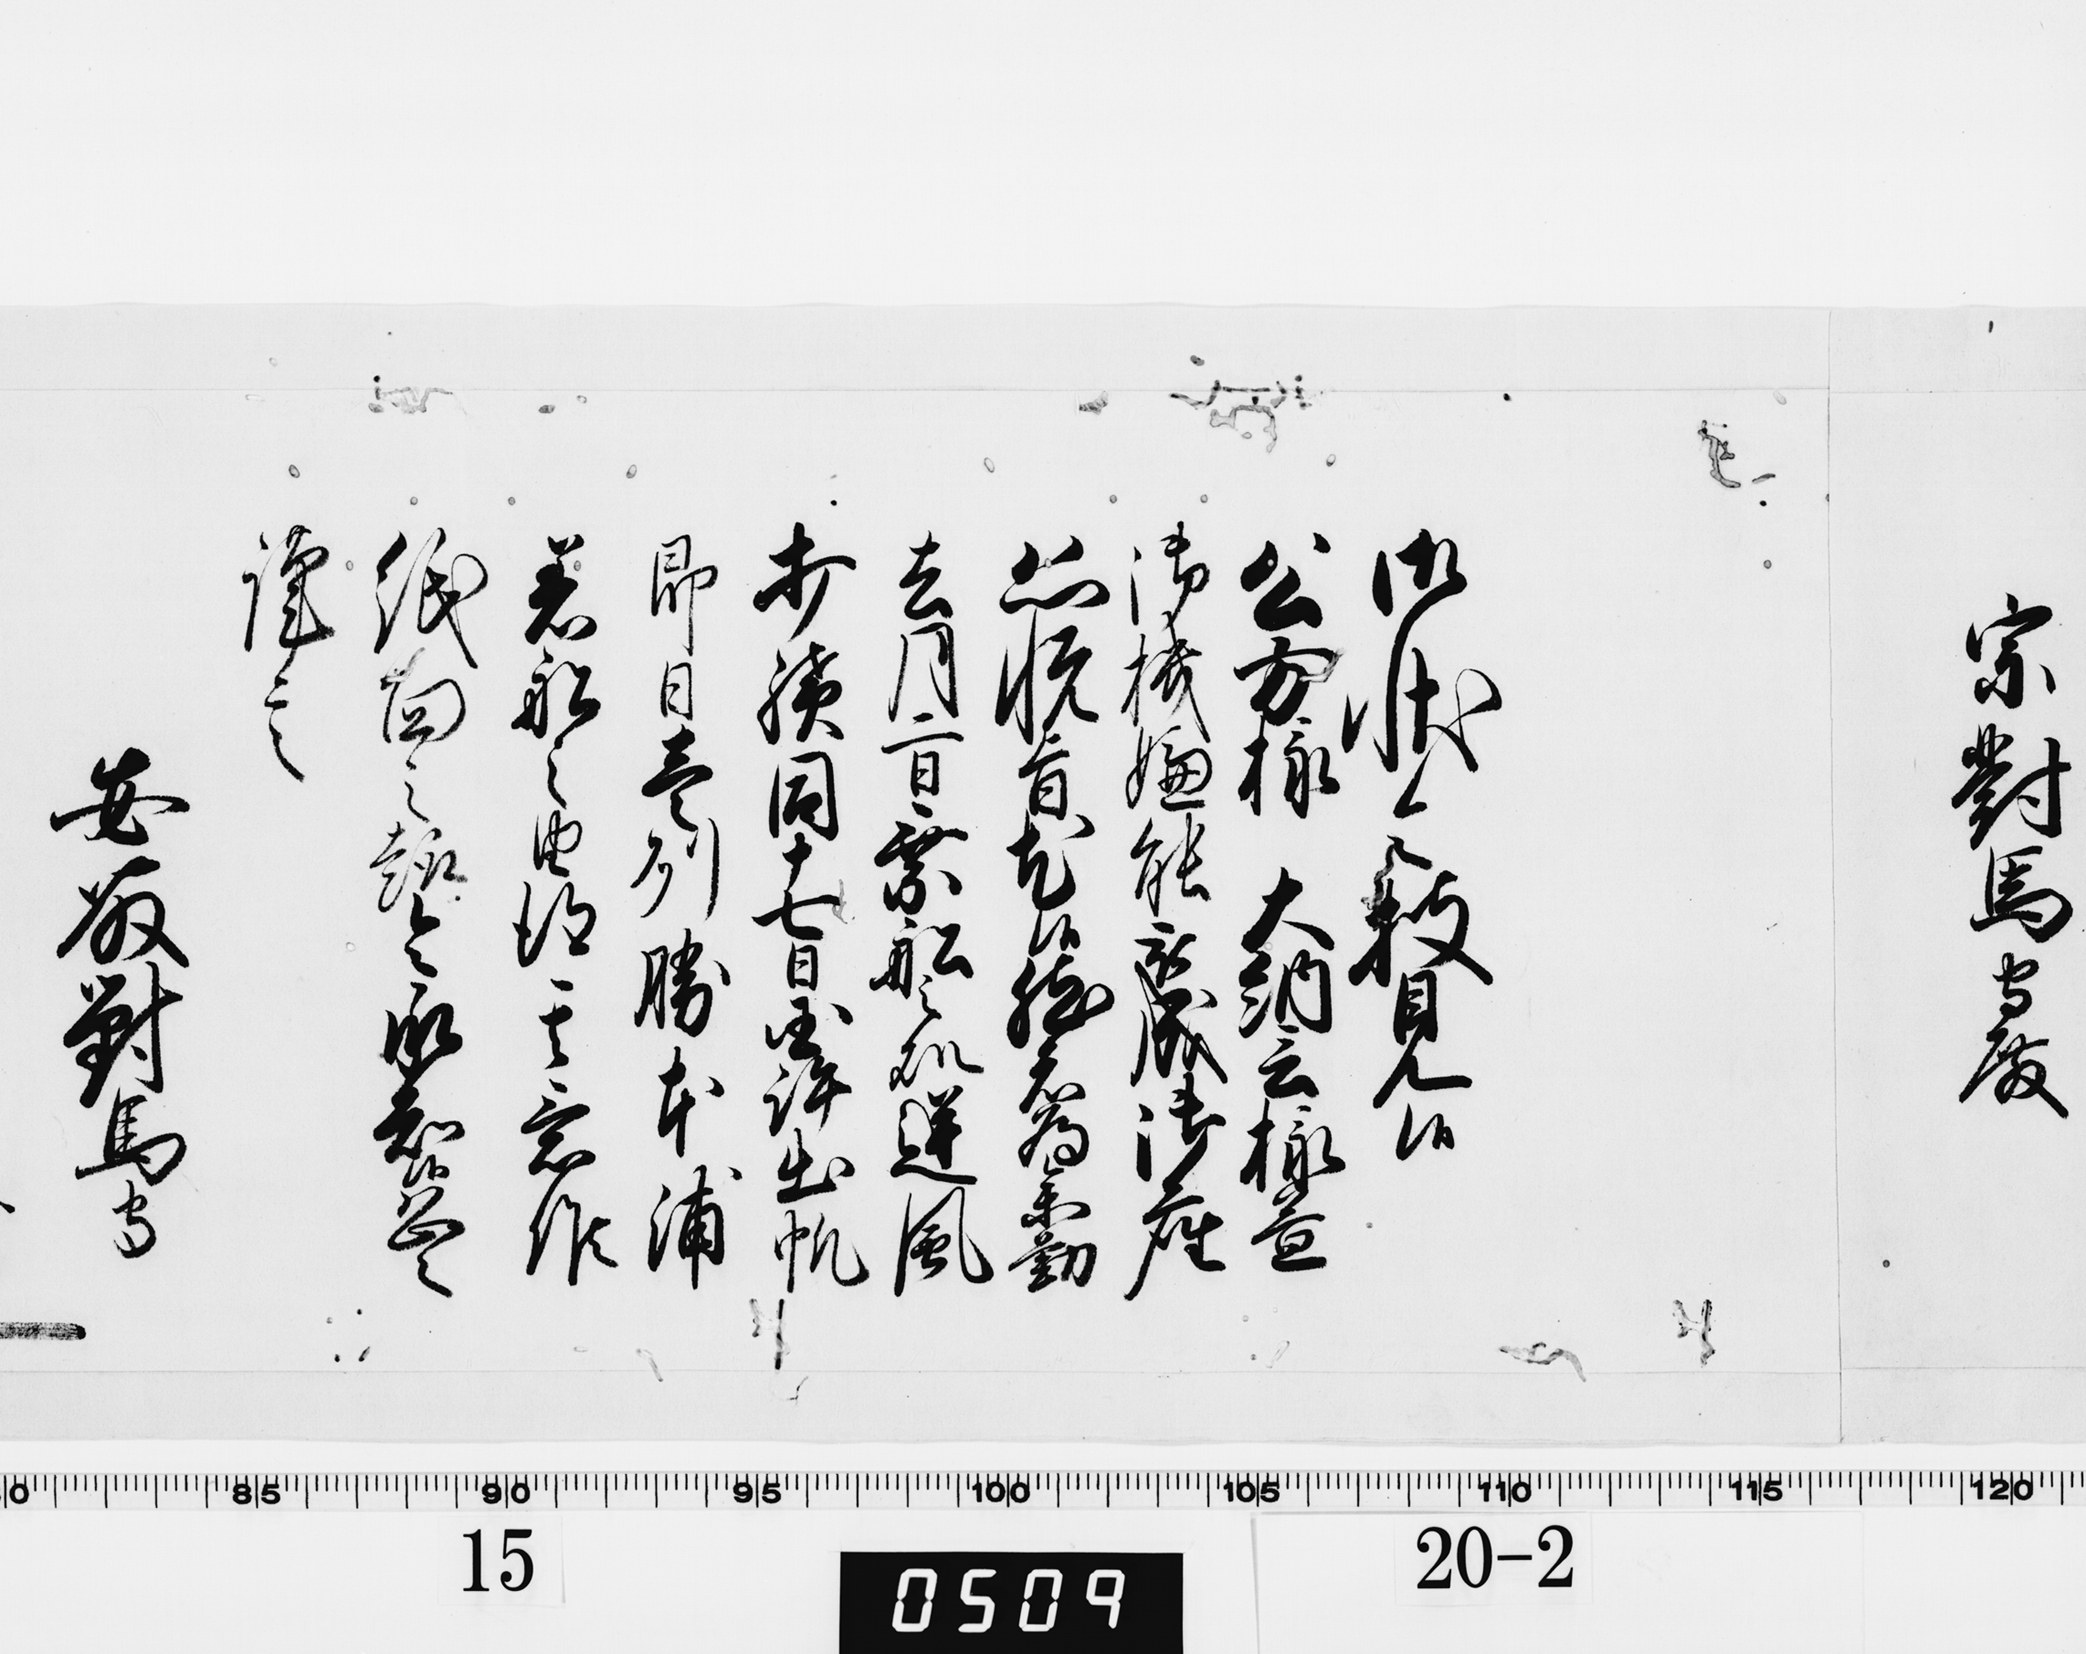 宗對馬守殿
御状令披見候
公方様 大納言様益
御機嫌能被成御座
恐悦旨尤候然者為参勤
去月二日乗船之処逆風
打續同十七日国許出帆
即日壱州勝本浦
着船之由得其意候
紙面之趣令承知候恐々
謹言
安藤對馬守
15
0509
20-2
85
90
95
100
105
110
115
120